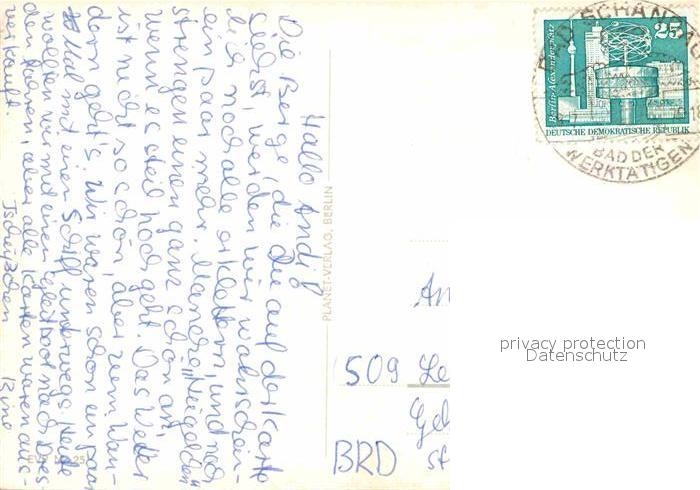 Hallo Andi!
Die Berge, die Du auf der Karte
siehst, werden wir wahrschein-
lich noch alle erklettern, und noch
ein paar mehr. Manche „Hügelchen"
strengen einen ganz schön an,
wenn es steil hoch geht. Das Wetter
ist nicht so schön, aber zum Wan-
dern geht's. Wir waren schon ein paar
Mal mit einem Schiff unterwegs. Heute
wollten wir mit einem nach Dres-
den fahren, aber alle Karten waren aus-
verkauft.
Tschüßchen
PLANET-VERLAG, BERLIN
EVP
25
Berlin-Alexanderplatz
DEUTSCHE DEMOKRATISCHE REPUBLIK
BAD SCHANDAU
BAD DER
WERKTÄTIGEN
An
509 Le
Ge
BRD St
privacy protection
Datenschutz